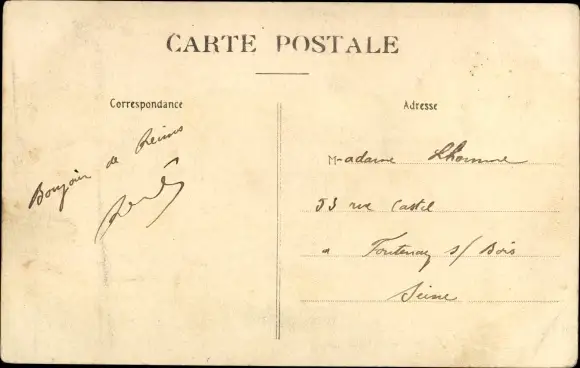 CARTE POSTALE
Correspondance
Adresse
Bonjour de Reims
René
Madame Lhomme
53 rue Castel
a Fontenay s/ Bois
Seine